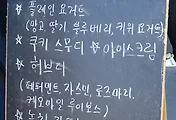 플레인 요거트
(망고 딸기, 블루베리, 키위 요거트)
쿠키 스무디 ☆ 아이스크림
허브티
(페퍼민트, 자스민, 로즈마리,
캐모마일, 루이보스)